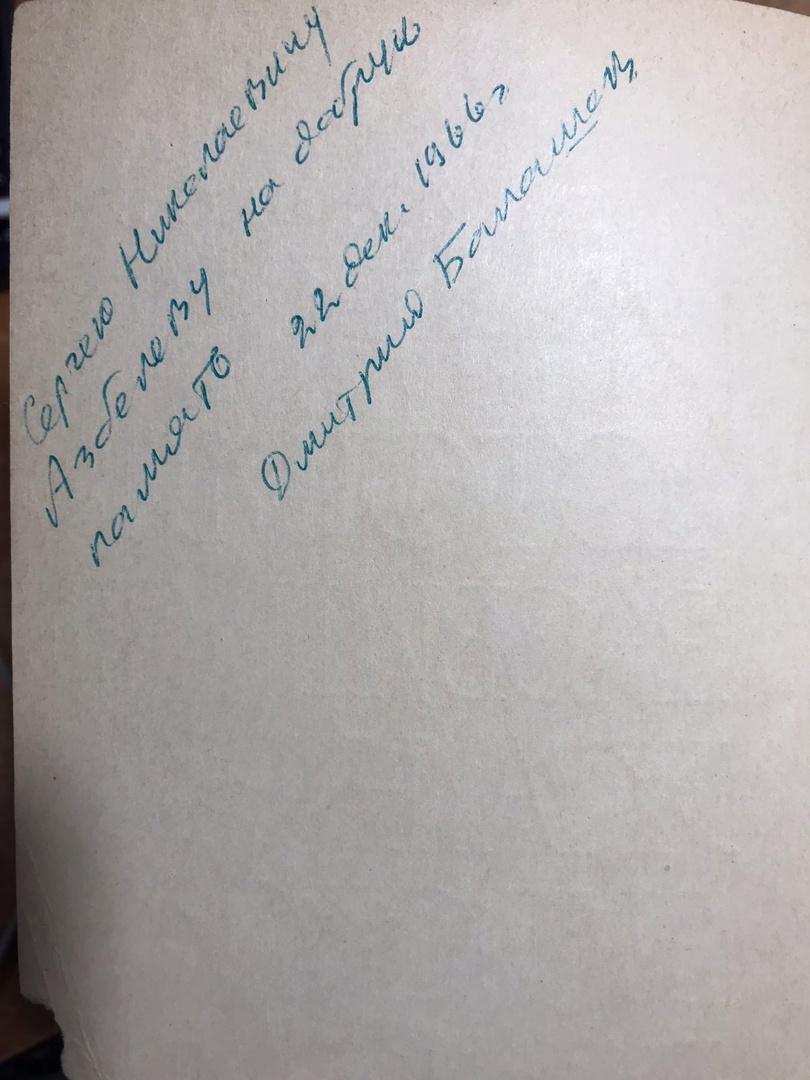 Сергею Николаевичу
Азбелеву на добрую
память 22 дек. 1966 г
Дмитрий Балашов